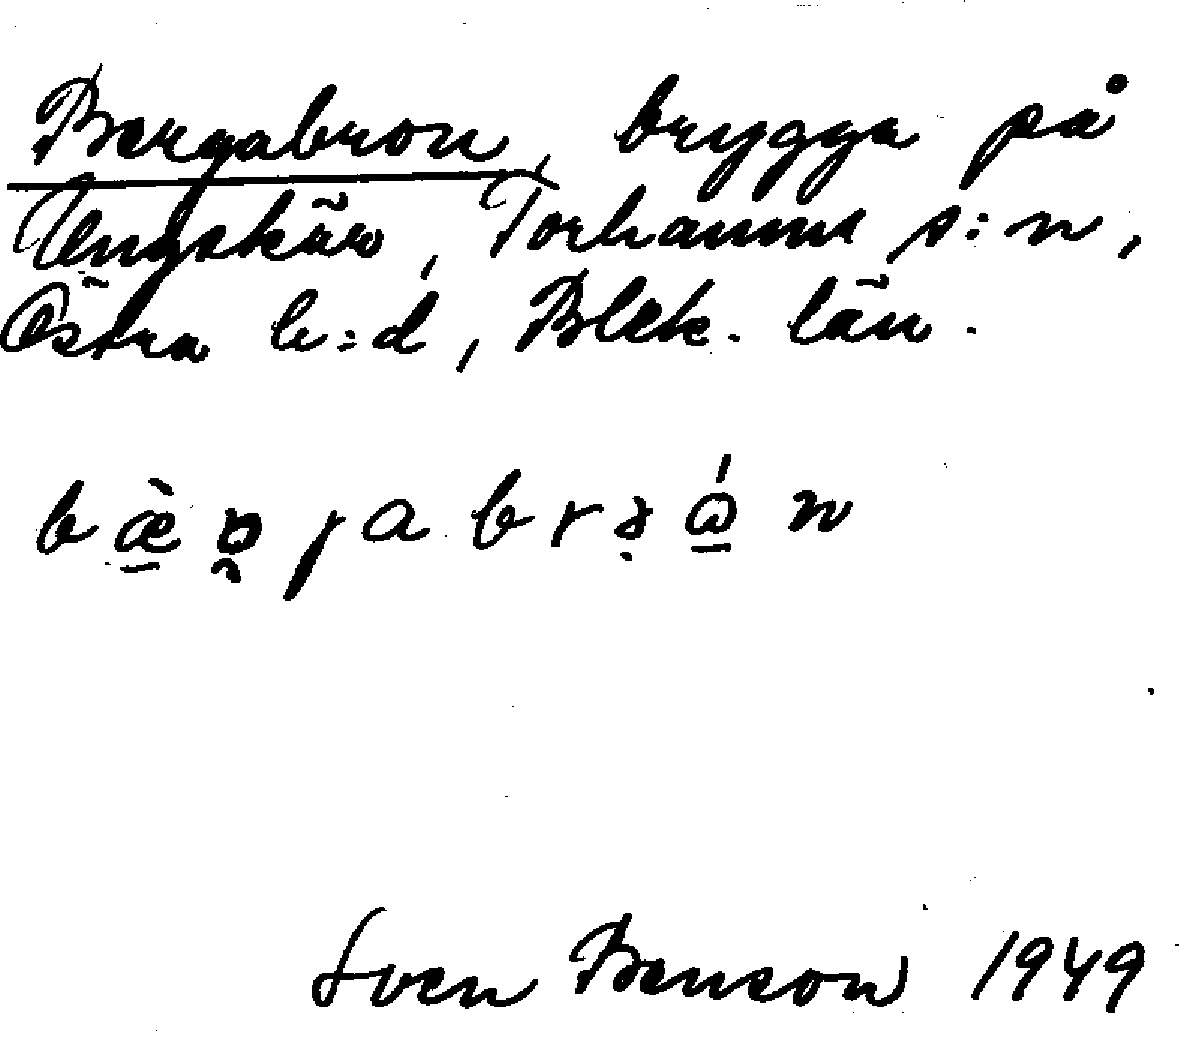 Bergabron, brygga på
Ungskär, Torhamns s:n,
Östra h:d, Blek. län.
Sven Benson 1949